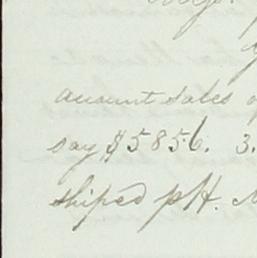 account sales
say $5856. 3.
shiped pH.